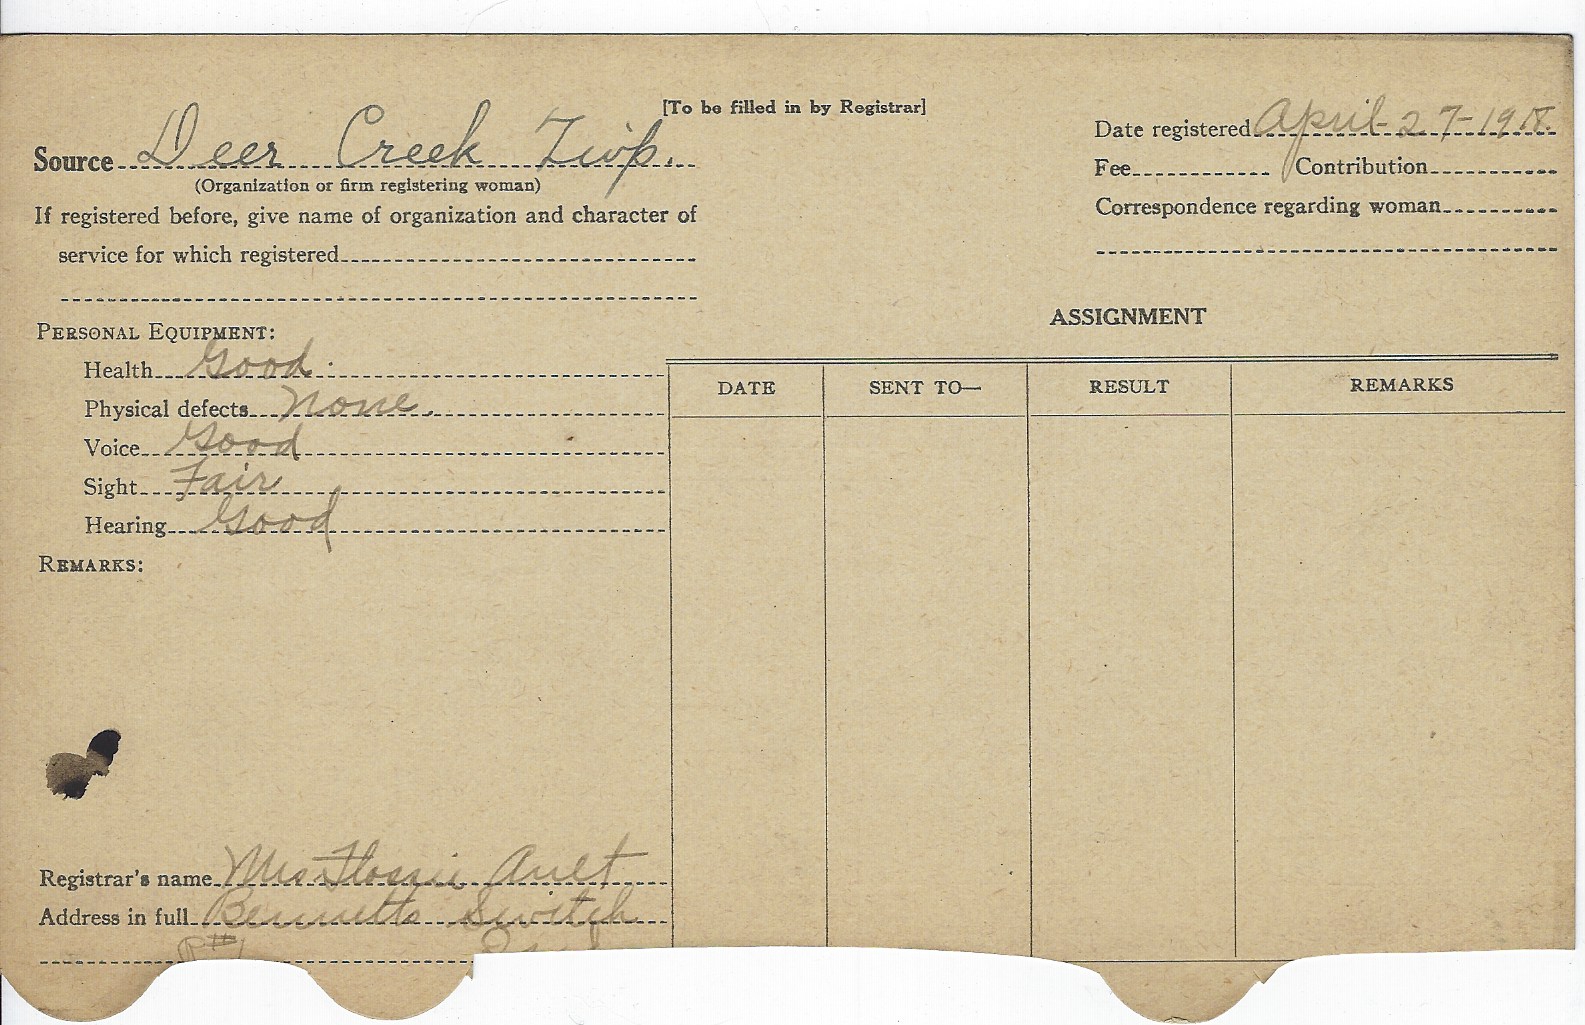 [To be filled in by Registrar]
Source Deer Creek Twp.
(Organization or firm registering woman)
If registered before, give name of organization and character of
service for which registered
Date registered April-27-1918.
Fee Contribution
Correspondence regarding woman
PERSONAL EQUIPMENT:
Health Good.
Physical defects None.
Voice Good
Sight Fair
Hearing Good
REMARKS:
Registrar's name Mrs Flossie Ault
Address in full Bennetts Switch
R#1
ASSIGNMENT
DATE SENT TO— RESULT REMARKS